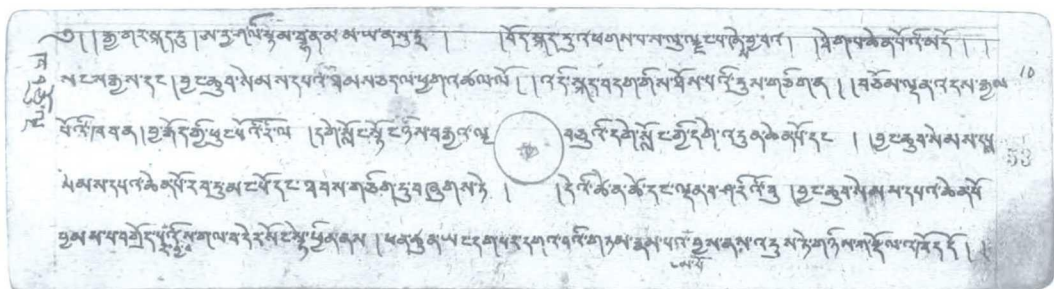 ༄། །རྒྱ་གར་སྐད་དུ། ཨརྱ་ཤ་ལི་སྟམ་བྷ་ན་མ་མ་ཡ་ན་སུ་ཏྲ། །བོད་སྐད་དུ་འཕགས་པ་ས་ལུ་ལྗང་པ་ཞེས་བྱ་བའ། །ཐེག་པ་ཆེན་པོའི་མདོ། །
སངས་རྒྱས་དང་། བྱང་ཆུབ་སེམས་དཔའ་ཐམས་ཅད་ལ་ཕྱག་འཚལ་ལོ། །འདི་སྐད་བདག་གིས་ཐོས་པའི་དུས་གཅིག་ན། །བཅོམ་ལྡན་འདས་རྒྱལ 10
པོའི་ཁབ་ན། བྱ་རྒོད་ཀྱི་ཕུང་པོའི་རི་ལ། དགེ་སློང་སྟོང་ཉིས་བརྒྱའ་ལྔ་ བཅུའི་དགེ་སློང་གྱི་དགེ་འདུན་ཆེན་པོ་དང་། །བྱང་ཆུབ་སེམས་དཔའ 53
སེམས་དཔའ་ཆེན་པོ་རབ་དུ་མང་པོ་དང་ཐབས་གཅིག་དུ་བཞུགས་ཏེ། །དེའི་ཚེ་ན་ཚེ་དང་ལྡན་བ་ཤ་རིའི་བུ། བྱང་ཆུབ་སེམས་དཔའ་ཆེན་པོ
བྱམས་པ་བགྲོད་ ག་ལ་བ་དེར་སོང་སྟེ་ཕྱིན་ནས། ཕན་ཚུན་ཡང་དག་པར་དགའ་བའི་གཏམ་རྣམ་པ་ བྱས་ནས་འདུས་ཏེ་གཉིས་ག་